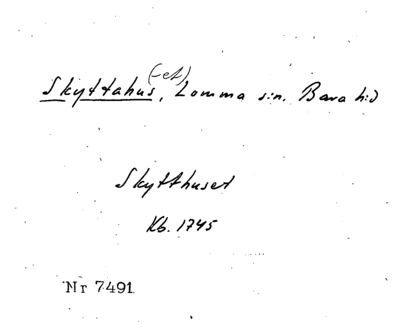 Skyttahus (-et), Lomma sn. Bara hd
Skytthuset
Kb. 1745
Nr 7491